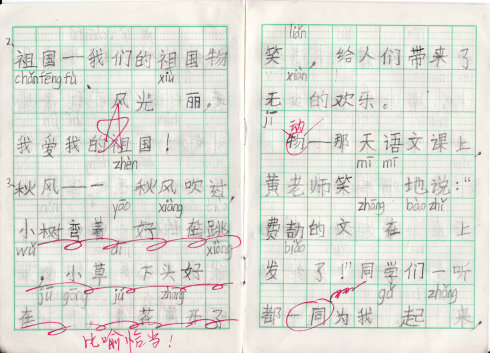 2.
祖国——我们的祖国物
chǎn fēng fù
xiù
风光 丽。
我爱我的祖国！
zhèn
3.
秋风—— 秋风吹过，
yāo xiàng
小树弯着 好 在跳
wǔ
ài
xiàng
。小草 下头好
jū gōng
jú
zhāng
在 。 花 子
比喻恰当！
liǎn
笑 ，给人们带来了
xiàn
无 的欢乐。
jī
动
物——那天语文课上，
mī mī
黄老师笑 地说：“
zhāng bào zhǐ
费 的文 在 上
biǎo
发 了！”同学们一听
gǔ zhǎng
都一同为我 起 来